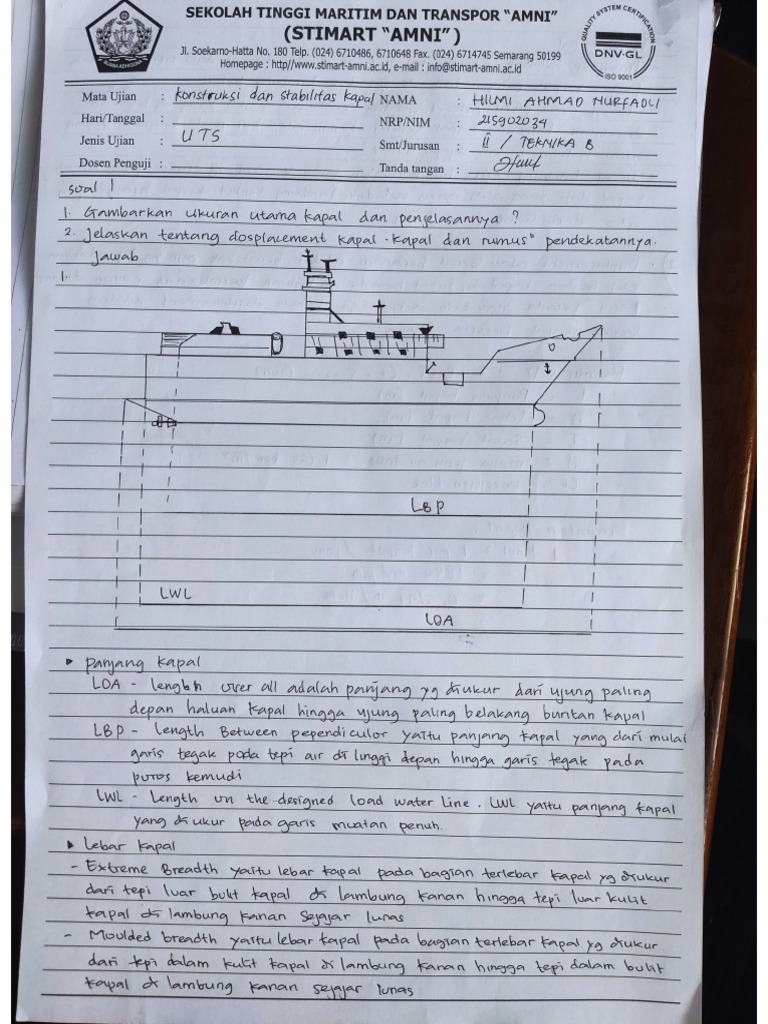 SEKOLAH TINGGI MARITIM DAN TRANSPOR "AMNI"
(STIMART "AMNI")
Jl. Soekarno-Hatta No. 180 Telp. (024) 6710486, 6710648 Fax. (024) 6714745 Semarang 50199
Homepage : http//www.stimart-amni.ac.id, e-mail : info@stimart-amni.ac.id
QUALITY SYSTEM CERTIFICATION
DNV·GL
ISO 9001
Mata Ujian : Konstruksi dan stabilitas kapal NAMA : HILMI AHMAD NURFADLI
Hari/Tanggal : NRP/NIM : 215902034
Jenis Ujian : UTS Smt/Jurusan : II / TEKNIKA B
Dosen Penguji : Tanda tangan :
Soal !
1. Gambarkan ukuran utama kapal dan penjelasannya ?
2. Jelaskan tentang dosplacement kapal-kapal dan rumus" pendekatannya.
Jawab
1.
LBP
LWL
LOA
▸ panjang kapal
LOA - lengbh over all adalah panjang yg diukur dari ujung paling
depan haluan kapal hingga ujung paling belakang buritan kapal
LBP - length Between pependiculor yaitu panjang kapal yang dari mulai
garis tegak pada tepi air di linggi depan hingga garis tegak pada
poros kemudi
LWL - Length on the designed load water line. LWL yaitu panjang kapal
yang diukur pada garis muatan penuh.
▸ Lebar kapal
- Extreme Breadth yaitu lebar kapal pada bagian terlebar kapal yg diukur
dari tepi luar bulit kapal di lambung kanan hingga tepi luar kulit
kapal di lambung kanan sejajar lunas
- Moulded breadth yaitu lebar kapal pada bagian terlebar kapal yg diukur
dari tepi dalam kulit kapal di lambung kanan hingga tepi dalam bulit
kapal di lambung kanan sejajar lunas